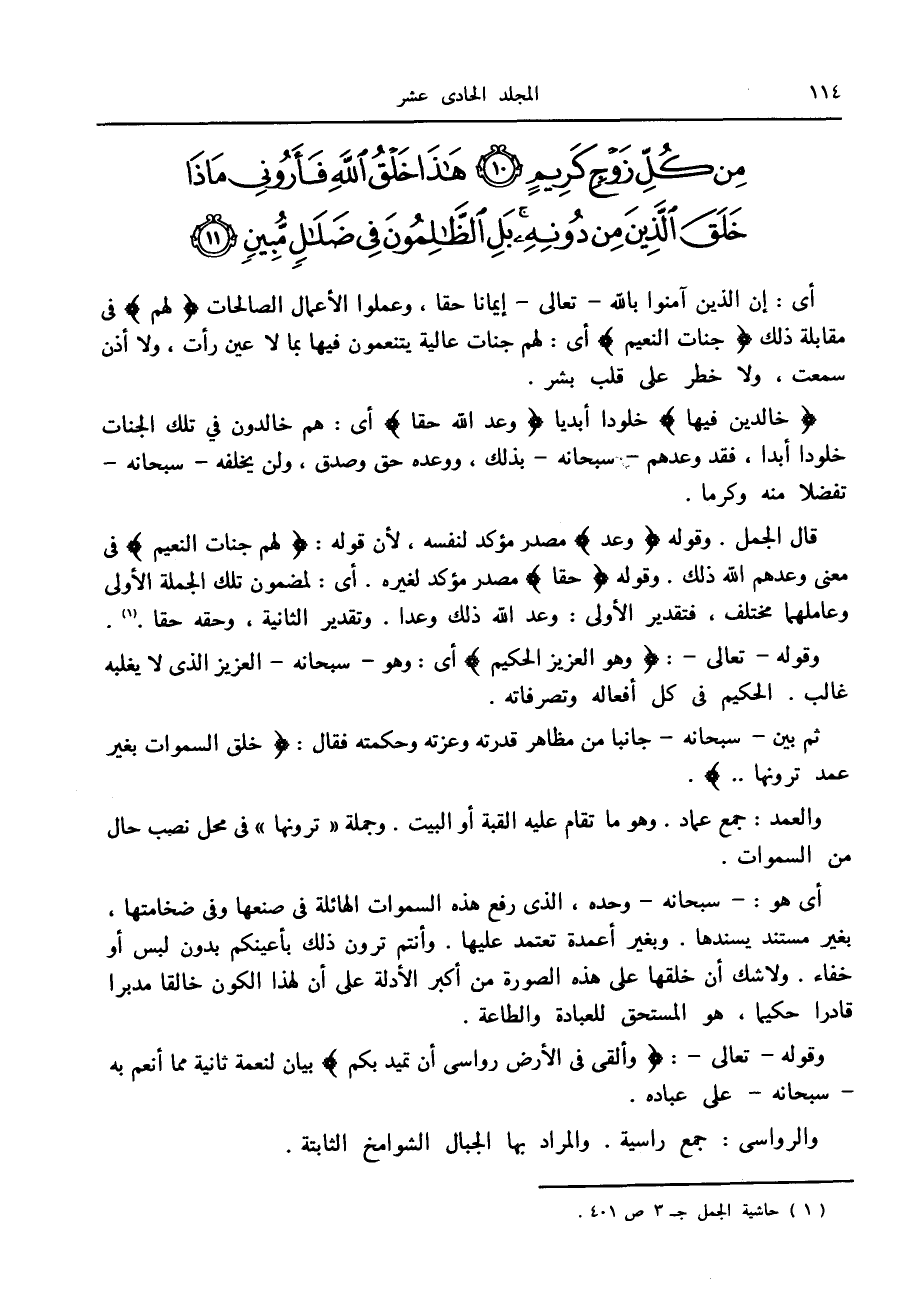 ١١٤
المجلد الحادى عشر
مِن كُلِّ زَوْجٍ كَرِيمٍ ﴿١٠﴾ هَٰذَا خَلْقُ ٱللَّهِ فَأَرُونِى مَاذَا
خَلَقَ ٱلَّذِينَ مِن دُونِهِۦ ۚ بَلِ ٱلظَّٰلِمُونَ فِى ضَلَٰلٍ مُّبِينٍ ﴿١١﴾
أى : إن الذين آمنوا بالله – تعالى – إيمانا حقا ، وعملوا الأعمال الصالحات ﴿ لهم ﴾ فى
مقابلة ذلك ﴿ جنات النعيم ﴾ أى : لهم جنات عالية يتنعمون فيها بما لا عين رأت ، ولا أذن
سمعت ، ولا خطر على قلب بشر .
﴿ خالدين فيها ﴾ خلودا أبديا ﴿ وعد الله حقا ﴾ أى : هم خالدون في تلك الجنات
خلودا أبدا ، فقد وعدهم – سبحانه – بذلك ، ووعده حق وصدق ، ولن يخلفه – سبحانه –
تفضلا منه وكرما .
قال الجمل . وقوله ﴿ وعد ﴾ مصدر مؤكد لنفسه ، لأن قوله : ﴿ لهم جنات النعيم ﴾ فى
معنى وعدهم الله ذلك . وقوله ﴿ حقا ﴾ مصدر مؤكد لغيره . أى : لمضمون تلك الجملة الأولى
وعاملهما مختلف ، فتقدير الأولى : وعد الله ذلك وعدا . وتقدير الثانية ، وحقه حقا .(١) .
وقوله – تعالى – : ﴿ وهو العزيز الحكيم ﴾ أى : وهو – سبحانه – العزيز الذى لا يغلبه
غالب . الحكيم فى كل أفعاله وتصرفاته .
ثم بين – سبحانه – جانبا من مظاهر قدرته وعزته وحكمته فقال : ﴿ خلق السموات بغير
عمد ترونها .. ﴾ .
والعمد : جمع عماد . وهو ما تقام عليه القبة أو البيت . وجملة « ترونها » فى محل نصب حال
من السموات .
أى هو : – سبحانه – وحده ، الذى رفع هذه السموات الهائلة فى صنعها وفى ضخامتها ،
بغير مستند يسندها . وبغير أعمدة تعتمد عليها . وأنتم ترون ذلك بأعينكم بدون لبس أو
خفاء . ولاشك أن خلقها على هذه الصورة من أكبر الأدلة على أن لهذا الكون خالقا مدبرا
قادرا حكيما ، هو المستحق للعبادة والطاعة .
وقوله – تعالى – : ﴿ وألقى فى الأرض رواسى أن تميد بكم ﴾ بيان لنعمة ثانية مما أنعم به
– سبحانه – على عباده .
والرواسى : جمع راسية . والمراد بها الجبال الشوامخ الثابتة .
( ١ ) حاشية الجمل جـ ٣ ص ٤٠١ .